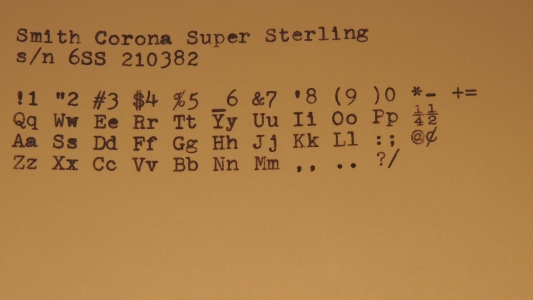 Smith Corona Super Sterling
s/n 6SS 210382
!1 "2 #3 $4 %5 _6 &7 '8 (9 )0 *- +=
Qq Ww Ee Rr Tt Yy Uu Ii Oo Pp ¼½
Aa Ss Dd Ff Gg Hh Jj Kk Ll :; @¢
Zz Xx Cc Vv Bb Nn Mm ,, .. ?/